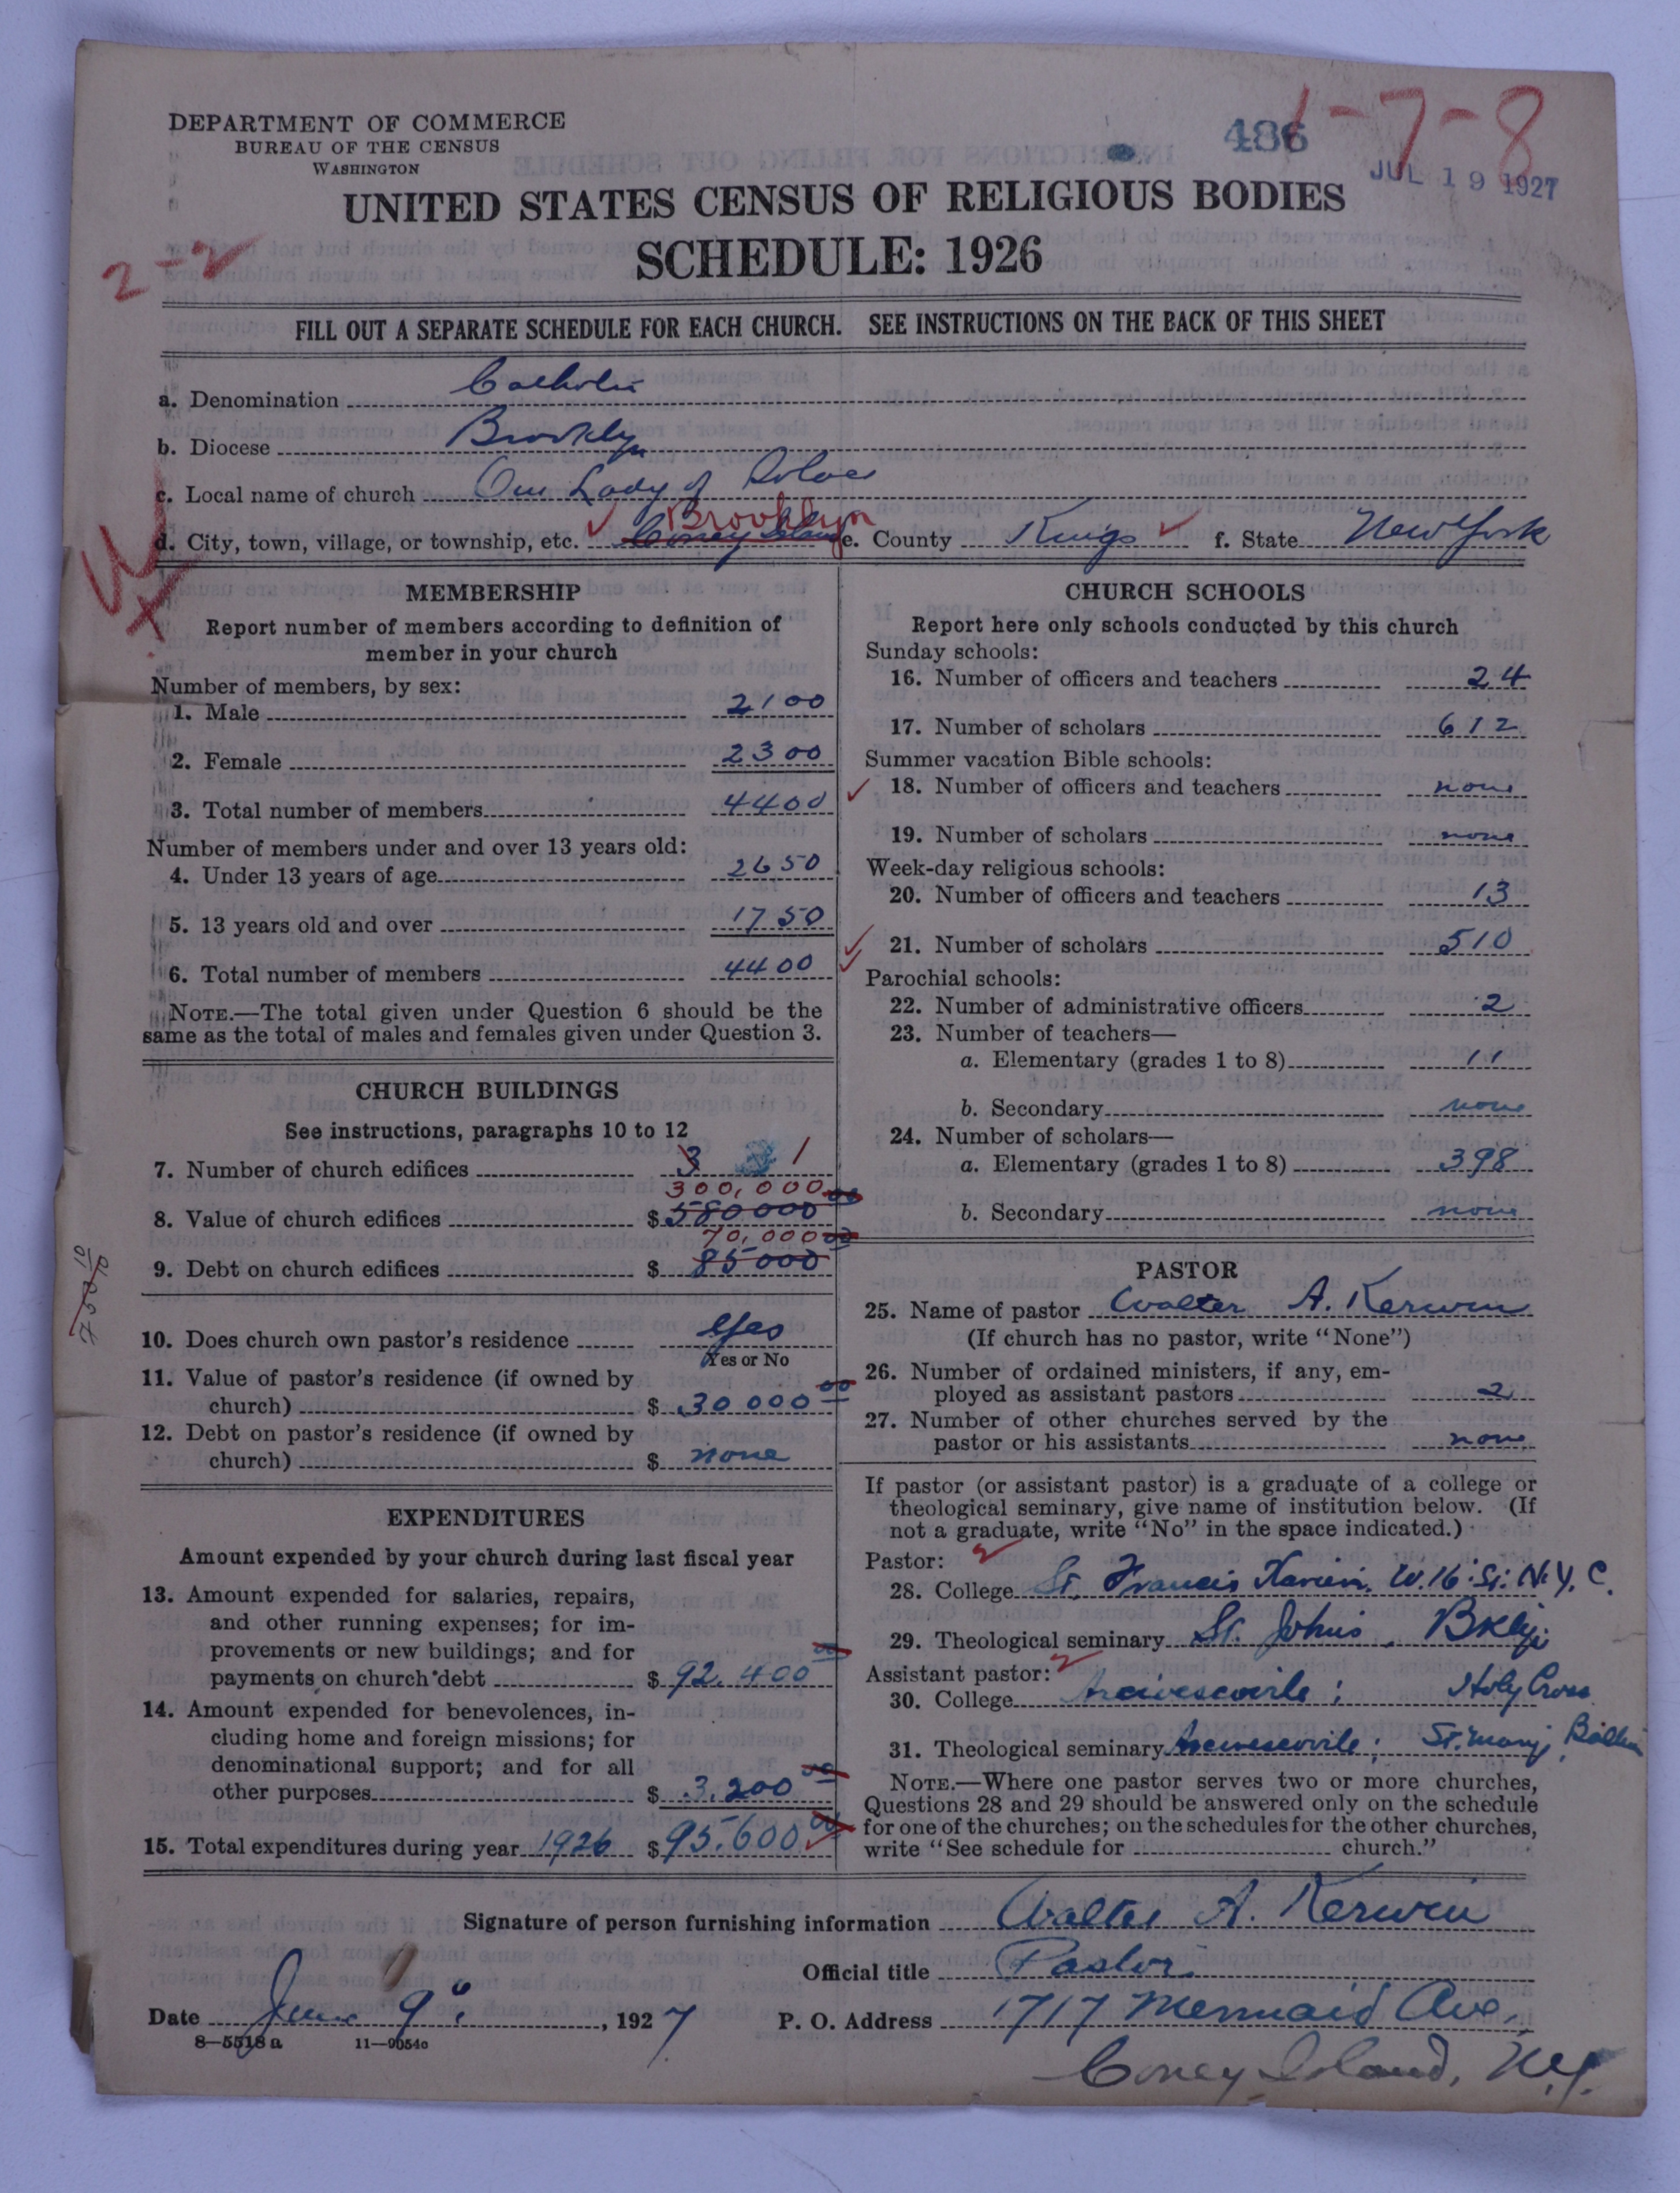 DEPARTMENT OF COMMERCE
BUREAU OF THE CENSUS
WASHINGTON
486
1-7-8
JUL 19 1927
UNITED STATES CENSUS OF RELIGIOUS BODIES
SCHEDULE: 1926
2-2
FILL OUT A SEPARATE SCHEDULE FOR EACH CHURCH. SEE INSTRUCTIONS ON THE BACK OF THIS SHEET
a. Denomination Catholic
b. Diocese Brooklyn
c. Local name of church Our Lady of Solace
Brooklyn
d. City, town, village, or township, etc. Coney Island e. County Kings f. State New York
MEMBERSHIP
Report number of members according to definition of
member in your church
Number of members, by sex:
1. Male 2100
2. Female 2300
3. Total number of members 4400
Number of members under and over 13 years old:
4. Under 13 years of age 2650
5. 13 years old and over 1750
6. Total number of members 4400
NOTE.—The total given under Question 6 should be the
same as the total of males and females given under Question 3.
CHURCH BUILDINGS
See instructions, paragraphs 10 to 12
7. Number of church edifices 3 1
300,000
8. Value of church edifices $580000 00
70,000
9. Debt on church edifices $ 85000 00
10. Does church own pastor's residence Yes
Yes or No
11. Value of pastor's residence (if owned by
church) $ 30000 00
12. Debt on pastor's residence (if owned by
church) $ none
EXPENDITURES
Amount expended by your church during last fiscal year
13. Amount expended for salaries, repairs,
and other running expenses; for im-
provements or new buildings; and for
payments on church debt $ 92.400 00
14. Amount expended for benevolences, in-
cluding home and foreign missions; for
denominational support; and for all
other purposes $ 3.200 00
15. Total expenditures during year 1926 $95.600 00
CHURCH SCHOOLS
Report here only schools conducted by this church
Sunday schools:
16. Number of officers and teachers 24
17. Number of scholars 612
Summer vacation Bible schools:
18. Number of officers and teachers none
19. Number of scholars none
Week-day religious schools:
20. Number of officers and teachers 13
21. Number of scholars 510
Parochial schools:
22. Number of administrative officers 2
23. Number of teachers—
a. Elementary (grades 1 to 8) 11
b. Secondary none
24. Number of scholars—
a. Elementary (grades 1 to 8) 398
b. Secondary none
PASTOR
25. Name of pastor Walter A. Kerwin
(If church has no pastor, write "None")
26. Number of ordained ministers, if any, em-
ployed as assistant pastors 2
27. Number of other churches served by the
pastor or his assistants none
If pastor (or assistant pastor) is a graduate of a college or
theological seminary, give name of institution below. (If
not a graduate, write "No" in the space indicated.)
Pastor:
28. College St. Francis Xavier, W. 16 St. N.Y.C.
29. Theological seminary St. Johns, Bklyn
Assistant pastor:
30. College ; Holy Cross
31. Theological seminary ; St. Mary,
NOTE.—Where one pastor serves two or more churches,
Questions 28 and 29 should be answered only on the schedule
for one of the churches; on the schedules for the other churches,
write "See schedule for church."
Signature of person furnishing information Walter A. Kerwin
Official title Pastor
Date June 9", 1927 P. O. Address 1717 Mermaid Ave,
8—5518a 11—9054c
Coney Island, N.Y.